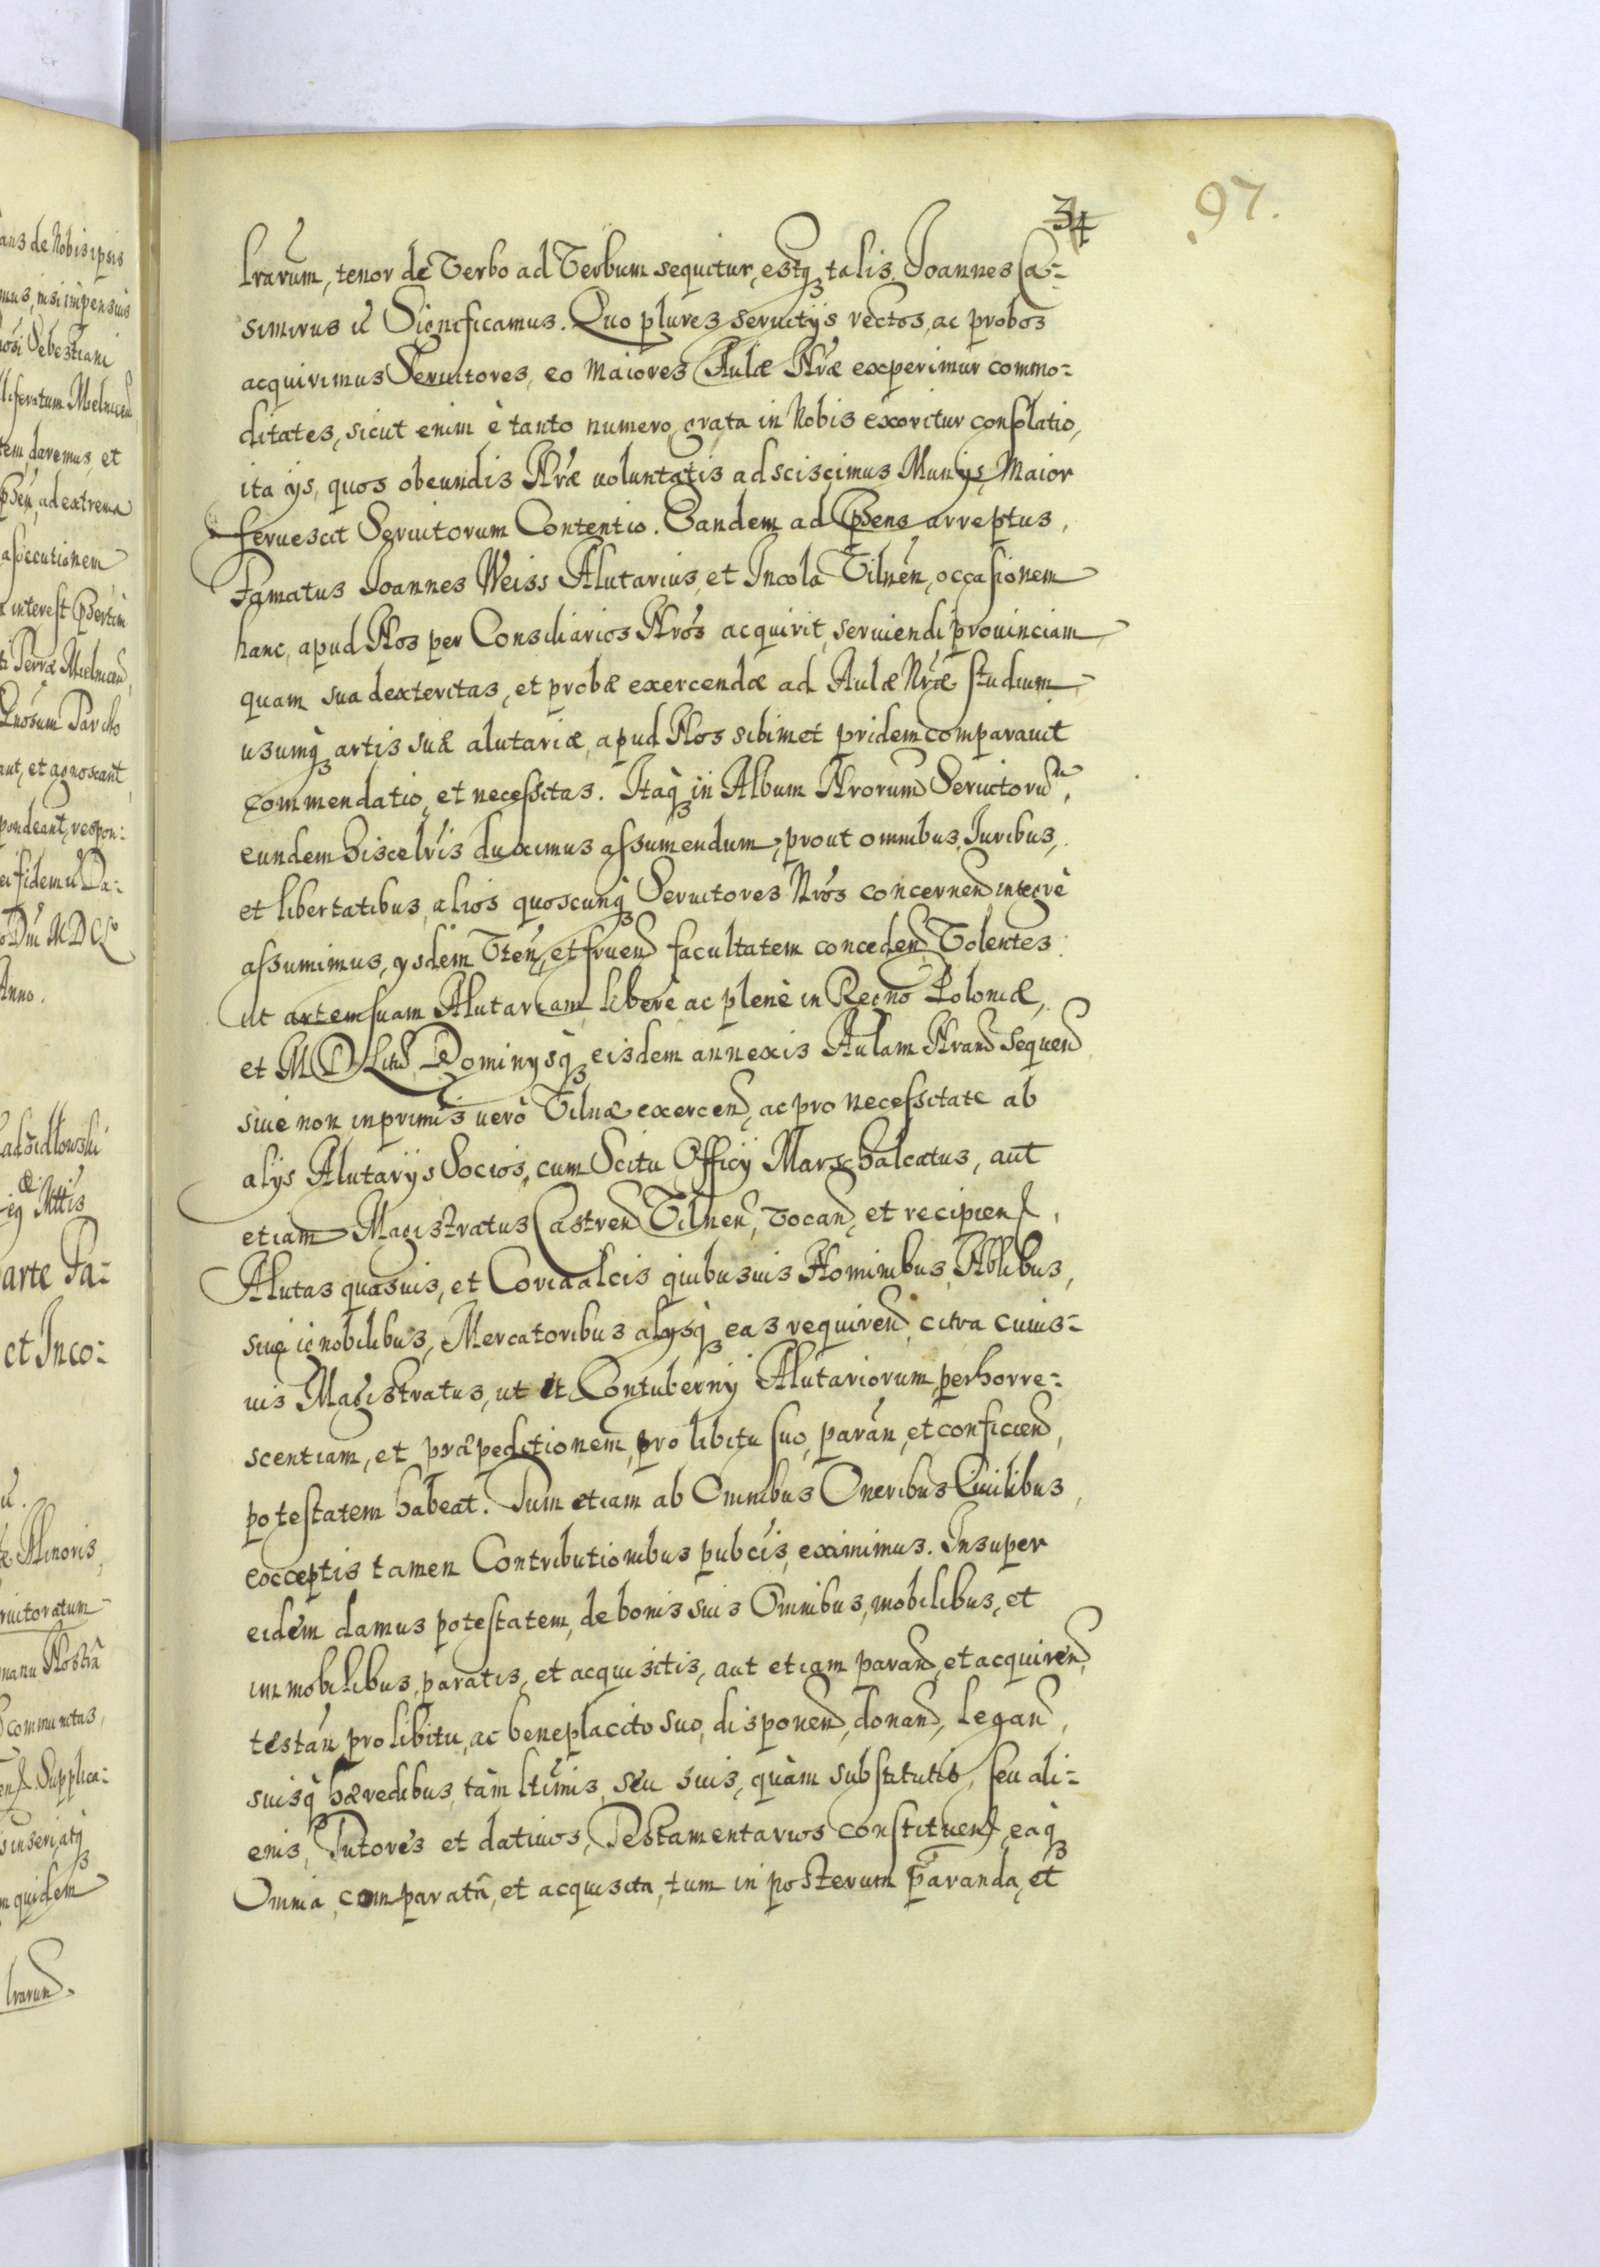 97.
34
lrarum, tenor de Verbo ad Verbum sequitur, estq talis. Joannes Ca=
simirus etc Significamus. Quo plures seruitijs rectos, ac probos
acquirimus Seruitores, eo maiores Aulæ Nræ experimur commo=
ditates, sicut enim è tanto numero, grata in Nobis exoritur consolatio,
ita ijs, quos obeundis Nræ voluntatis adsciscimus Munijs, Maior
feruescit Seruitorum Contentio. Eandem ad Psens arreptus,
Famatus Joannes Weiss Alutarius, et Incola Vilnen, occasionem
hanc, apud Nos per Consiliarios Nros acquirit, seruiendi prouinciam
quam sua dexteritas, et probæ exercendæ ad Aulæ Nræ studium,
usumq artis suæ alutariæ, apud Nos sibimet pridem comparauit
commendatio, et necessitas. Itaq in Album Nrorum Seruitorũ,
eundem hisce lris duximus assumendum, prout omnibus Iuribus,
et libertatibus, alios quoscunq Seruitores Nros concernen integrè
assumimus, ysdem Vten, et fruen facultatem conceden, Volentes
ut artem suam Alutariam liberè ac plenè in Regno Poloniæ,
et M D Litt, Dominysq eisdem annexis Aulam Nram sequen
siue non inprimis uerò Vilnæ exercen, ac pro necessitate ab
alijs Alutarijs Socios, cum Scitu Officij Marschalcatus, aut
etiam Magistratus Castren Vilnen, Vocan, et recipien,
Alutas quasuis, et Coria alcis quibusuis Hominibus, Nobilibus,
siue ignobilibus, Mercatoribus alysq eas requiren, citra cuius=
uis Magistratus, ut et Contubernij Alutariorum perhorre=
scentiam, et præpeditionem, pro libitu suo, paran, et conficien,
potestatem habeat. Tum etiam ab Omnibus Oneribus Ciuilibus,
exceptis tamen Contributionibus pubcis, eximimus. Insuper
eidem damus potestatem, de bonis suis Omnibus, mobilibus, et
immobilibus, paratis, et acquisitis, aut etiam paran, et acquiren,
testan pro libitu, ac beneplacito suo, disponen, donan, legan,
suisq hæredibus, tàm ltimis, seu suis, quàm substitutis, seu ali=
enis, Tutores et datiuos, Testamentarios constituen, eaq
Omnia, comparata, et acquisita, tum in posterum paranda, et